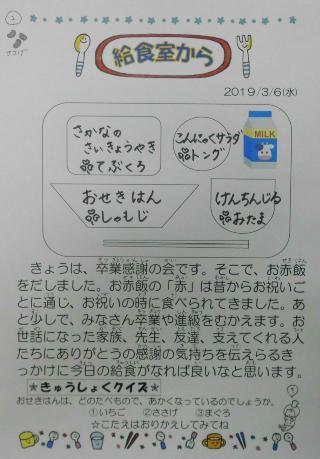 ②
ささげ
給食室から
2019/3/6(水)
さかなの
さいきょうやき
てぶくろ
こんにゃくサラダ
トング
MILK
おせきはん
しゃもじ
けんちんじる
おたま
きょうは、卒業感謝の会です。そこで、お赤飯
をだしました。お赤飯の「赤」は昔からお祝いご
とに通じ、お祝いの時に食べられてきました。あ
と少しで、みなさん卒業や進級をむかえます。お
世話になった家族、先生、友達、支えてくれる人
たちにありがとうの感謝の気持ちを伝えらるき
っかけに今日の給食がなれば良いなと思います。
★きゅうしょくクイズ★
おせきはんは、どのたべもので、あかくなっているのでしょうか。
①いちご ②ささげ ③まぐろ
☆こたえはおりかえしてみてね